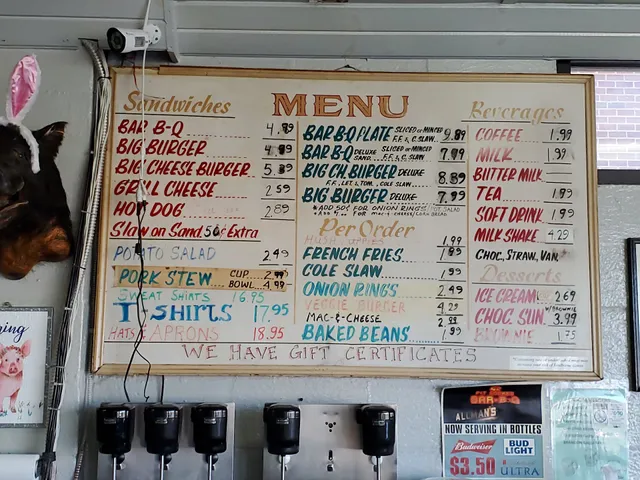 MENU
Sandwiches
BAR B-Q 4.89
BIG BURGER 4.89
BIG CHEESE BURGER 5.89
GRILL CHEESE 2.59
HOT DOG 2.89
Slaw on Sand. 50¢ Extra
POTATO SALAD 2.49
PORK STEW CUP 2.99
BOWL 4.99
SWEAT SHIRTS 16.95
T SHIRTS 17.95
HATS & APRONS 18.95
BAR B-Q PLATE SLICED OR MINCED F.F. & C. SLAW 9.89
BAR B-Q DELUXE SAND. SLICED OR MINCED F.F. & C. SLAW 7.99
BIG CH. BURGER DELUXE 8.89
F.F., LET. & TOM., COLE SLAW
BIG BURGER DELUXE 7.99
ADD 50¢ FOR ONION RINGS
Per Order
HUSH PUPPIES 1.99
FRENCH FRIES 1.89
COLE SLAW 1.99
ONION RINGS 2.49
VEGGIE BURGER 4.29
MAC-&-CHEESE 2.99
BAKED BEANS 1.99
Beverages
COFFEE 1.99
MILK 1.99
BUTTER MILK
TEA 1.99
SOFT DRINK 1.99
MILK SHAKE 4.29
CHOC, STRAW, VAN.
Desserts
ICE CREAM 2.69
CHOC. SUN. W/BROWNIE 3.99
BROWNIE 1.75
WE HAVE GIFT CERTIFICATES
PIT COOKED
BAR-B-Q
ALLMAN'S
NOW SERVING IN BOTTLES
Budweiser
BUD LIGHT
$3.50
ULTRA